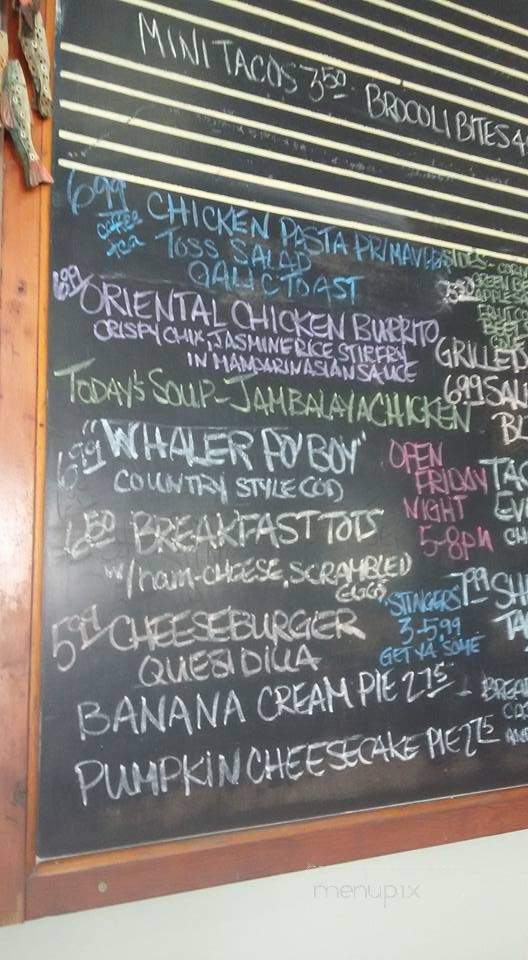 MINI TACOS 3.50
BROCOLI BITES 4
6.99 CHICKEN PASTA PRIMAVERA
coffee tea TOSS SALAD
GALIC TOAST
6.99 ORIENTAL CHICKEN BURRITO
CRISPY CHIX, JASMINE RICE STIRFRY
IN MANDARIN ASIAN SAUCE
TODAY'S SOUP - JAMBALAYA CHICKEN
6.99 "WHALER PO BOY"
COUNTRY STYLE COD
6.50 BREAKFAST TOTS
w/ ham-CHEESE, SCRAMBLED
EGGS
5.99 CHEESEBURGER
QUESIDILLA
BANANA CREAM PIE 2.75
PUMPKIN CHEESECAKE PIE 2.75
OPEN
FRIDAY
NIGHT
5-8pm
"STINGERS"
3-5.99
GET YA SOME
GREEN B
BEET
GRILLED
6.99 SAL
BL
TAC
EV
CH
7.99 SH
TA
BREA
menupix